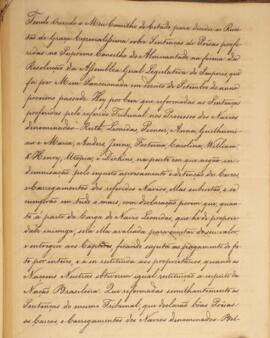 Tendo Ouvido o Meu Conselho de Estado para decidir as Revis-
tas de Graça Especialissima sobre Sentenças de Prezas profe-
ridas no Supremo Conselho do Almirantado na forma da
Resolução da Assemblea Geral Legislativa do Imperio, que
foi por Mim Sanccionada em vinte de Setembro do anno
proximo passado: Hey por bem que reformadas as Sentenças
proferidas pelo referido Tribunal nos Processos dos Navios
denominados Ruth, Leonidas, Pioneer, Anna, Guilhermi-
na e Maria, Andrea, Jenny, Fortuna, Carolina, William
& Henry, Utopia, e Dickens, na parte em que negão in-
demnisação pelo injusto apresamento e detenção dos Cascos
e Carregamentos dos referidos Navios, Mas subsistão, e se
cumprão em tudo o mais, com declaração porem que, quan-
to a parte da Carga do Navio Leonidas, que he de proprieda-
de inimiga, seja ella avaliada para constar do seu valor,
e entregue aos Captores, ficando sujeita ao pagamento do fre-
te por inteiro, e a ser restituida aos proprietarios, quando as
Naçoens Neutras obtiverem igual restituição a respeito da
Nação Brasileira: Que reformadas semelhantemente as
Sentenças do mesmo Tribunal, que declarão bôas Prezas
os Cascos, e Carregamentos dos Navios denominados Bel-